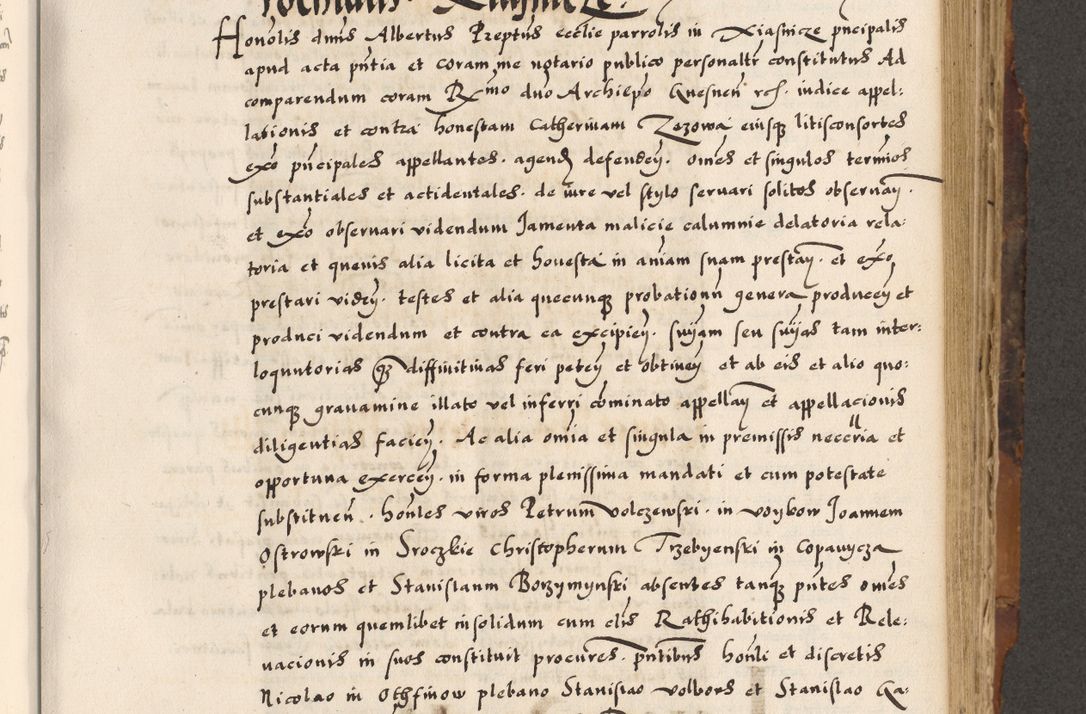 Honolis dnus Albertus Preptus ecclie parrolis in Xiasnicze pncipalis
apud acta pntia et coram me notario publico personalr constitutus Ad
comparendum coram Rmo dno Archiepo Gnesnen iudice appel:
lationis et contra honestam Catherinam Zezowa eiusq litisconsortes
exo pncipales appellantes. agend defendey. omes et singulos terminos
substantiales et accidentales. de iure vel stylo servari solitos observay.
et exo observari videndum Jamenta malicie calumnie delatoria rela:
toria et quevis alia licita et honesta in aniam suam prestay. et exo
prestari videy. testes et alia quecunq probationu genera producey et
produci videndum et contra ea excipiey. suyam seu suyas tam inter:
loquutorias q diffinitivas feri petey et obtiney et ab eis et alio quo:
cunq gravamine illato vel inferri cominato appellay et appellacionis
diligentias faciey. Ac alia omia et singula in premissis necceria et
opportuna exercey. in forma plenissima mandati et cum potestate
substituen. honles viros Petrum volczewski. in voybow Joannem
Ostrowski in Sroczkie Christopherum Trzebyenski in Copavycza
plebanos et Stanislaum Borzymynski absentes tanq pntes omes
et eorum quemlibet insolidum cum elis Rathihabitionis et Rele:
vacionis in suos constituit procures. pntibus honli et discretis
Nicolao in Othfinow plebano Stanislao volbors et Stanislao Ga: